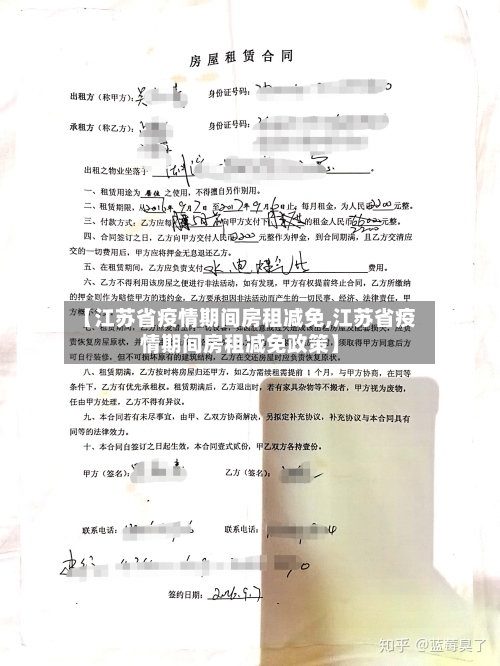 房屋租赁合同
出租方（称甲方）：吴 身份证号码：
承租方（称乙方）： 身份证号码：
出租之物业坐落于
一、租赁用途为 居住 之使用，不得擅自另作别用。
二、租赁期限，从2016年9月7日至2017年9月6日止，每月租金，为人民币2200元整。
三、付款方式：乙方应每 向甲方支付下 的租金人民币 元整。
四、合同签订之日，乙方向甲方交付人民币2200元整作为押金，到合同期满，且乙方交清应
交的一切费用后，甲方应将押金无息退还乙方。
五、在租赁期间，乙方应负责支付 水电煤气 费用。
六、乙方不得利用该房屋之便进行非法活动，如有发现，甲方有权提前终止合同，乙方所缴
纳的押金则作为赔偿甲方的违约金，乙方要承担因非法活动而产生的一切民事、经济、法律责任，甲
【江苏省疫情期间房租减免,江苏省疫
情期间房租减免政策】
责恢复房屋原状，并 须取得甲方同意后方
可自行装修，但不可损坏原有的建筑结构，乙方在交还房屋时应负责恢复原状。
八、租赁期满，乙方按时将房屋归还甲方，如乙方需续租需提前 1 个月，与甲方协商，在同等
条件下，乙方有优先承租权。租赁期满后，乙方退出时，若有家具杂物等不搬者，甲方视为废物，
任由甲方处理，乙方不得有异议。
九、本合同若有未尽事宜，由甲、乙双方协商解决，另拟定补充协议，补充协议与本合同具有
同等的法律效力。
十、本合同自签订之日起生效，本合同壹式贰份，甲乙双方各持壹份。
甲方（签名）： 乙方（签名）：
联系电话： 联系电话：
签约日期：2016.9.7
知乎 @蓝莓臭了